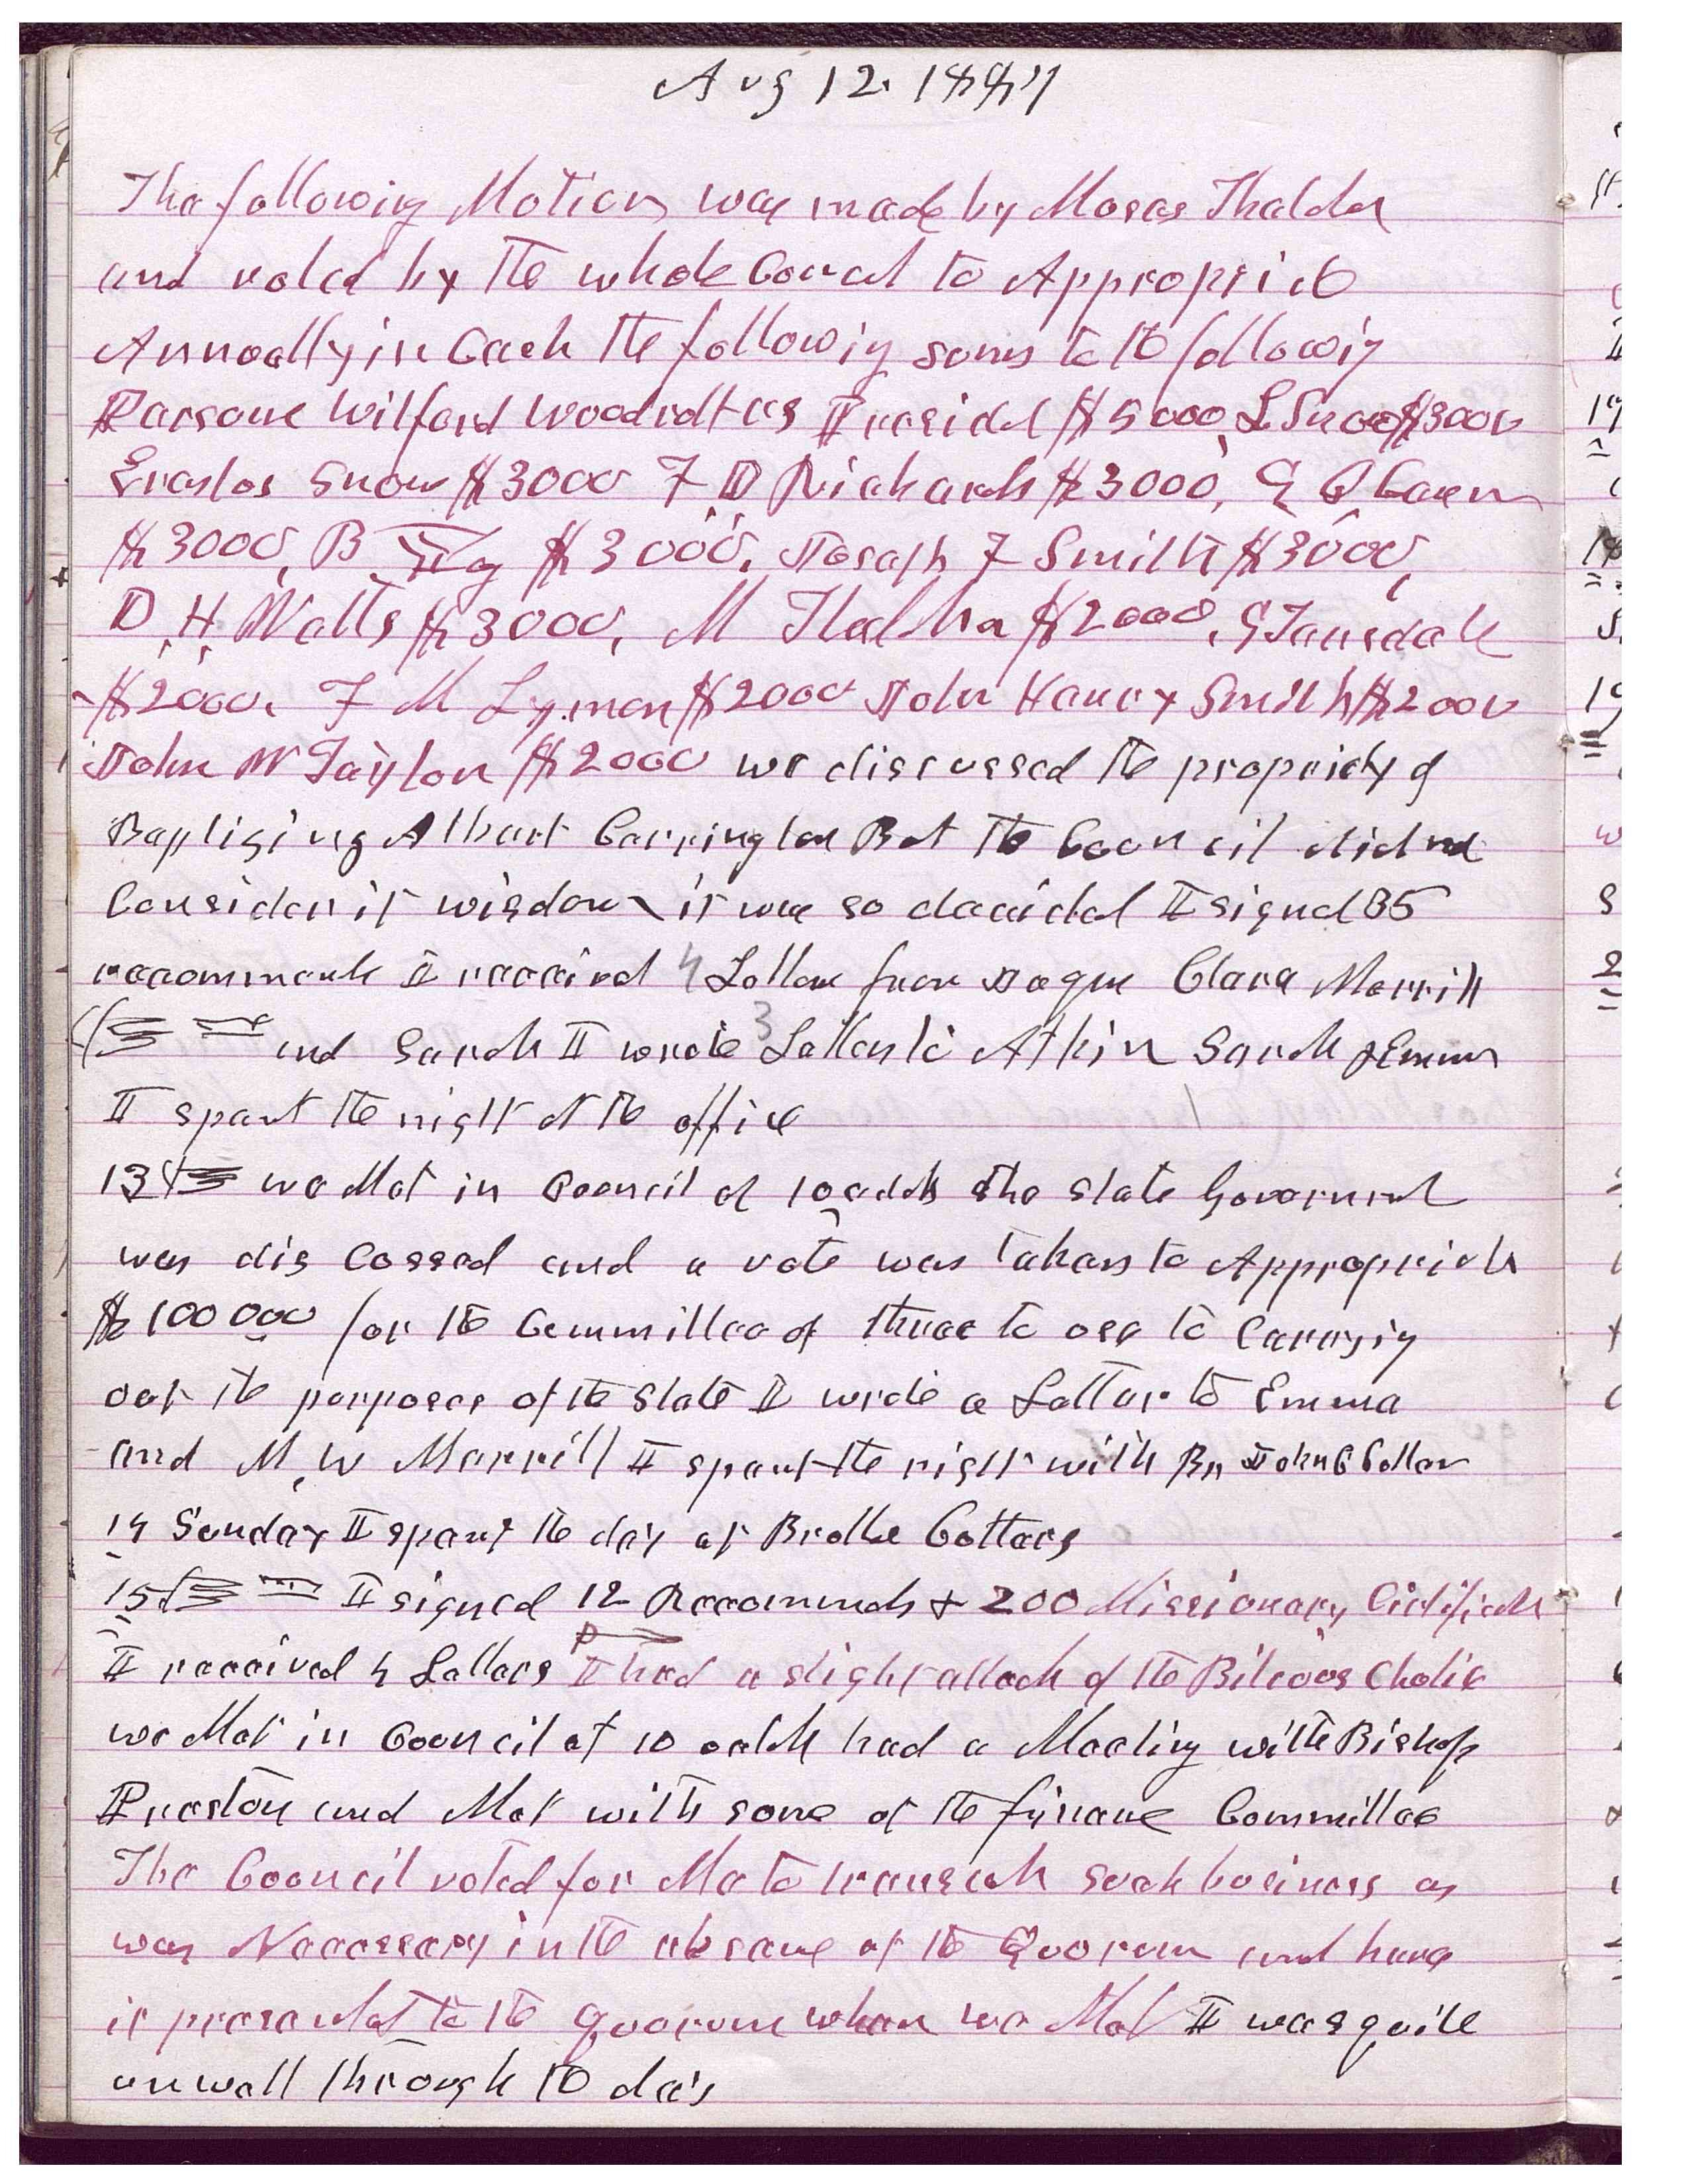 Aug 12. 1887
The following Motion was made by Moses Thatcher
and voted by the whole Council to Appropriate
Annually in Cash the following sums to the following
Persons Wilford Woodruff as President $5000, L Snow $3000
Erastus Snow $3000 F D Richards $3000, G Q Cannon
$3000, B Young $3000. Joseph F Smith $3000,
D H Wells $3000, M Thatcher $2000, G Teasdale
$2000. F M Lyman $2000 John Henry Smith $2000
John W Taylor $2000 we discussed the propriety of
Baptising Albert Carrington But the Council did not
Consider it wisdom it was so decided I signed 35
recommends I received 4 Letters from Clara Merrill
and Sarah I wrote 3 Letters to Atkin Sarah & Emma
I spent the night at the office
13 we Met in Council at 10 oclok the State Government
was dis Cussed and a vote was taken to Appropriate
$100000 for the Committee of three to use to Carrying
out the purposes of the State I wrote a Letter to Emma
and M, W Merrill I spent the night with Br John C Cutler
14 Sunday I spent the day at Brother Cutlers
15 I signed 12 Recommends & 200 Missionary Certificates
I received 4 Letters I had a slight attack of the Bilious Cholic
we Met in Council at 10 oclok had a Meeting with Bishop
Preston and Met with some of the finance Committee
The Council voted for Me to transact such business as
was Necessary in the absence of the Quorum and have
it presented to the quorum when we Met I was quite
unwell through the day